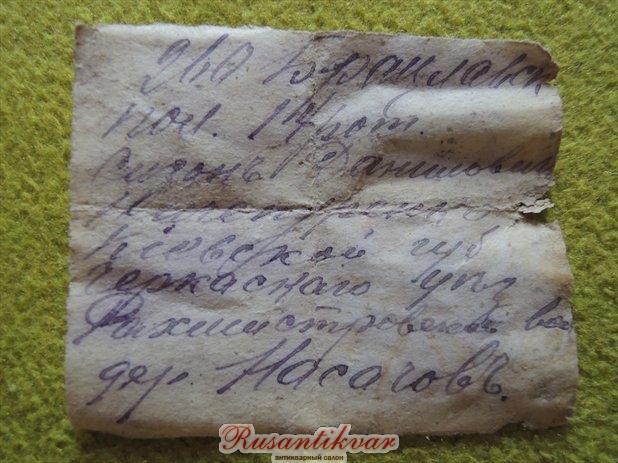 260 Браиловск
пол. 14 рот.
Симонъ Данилович
Киевской губ
Черкаскаго уез
Рахмистровской вол
дер. Насачовъ.
Rusantikvar
антикварный салон